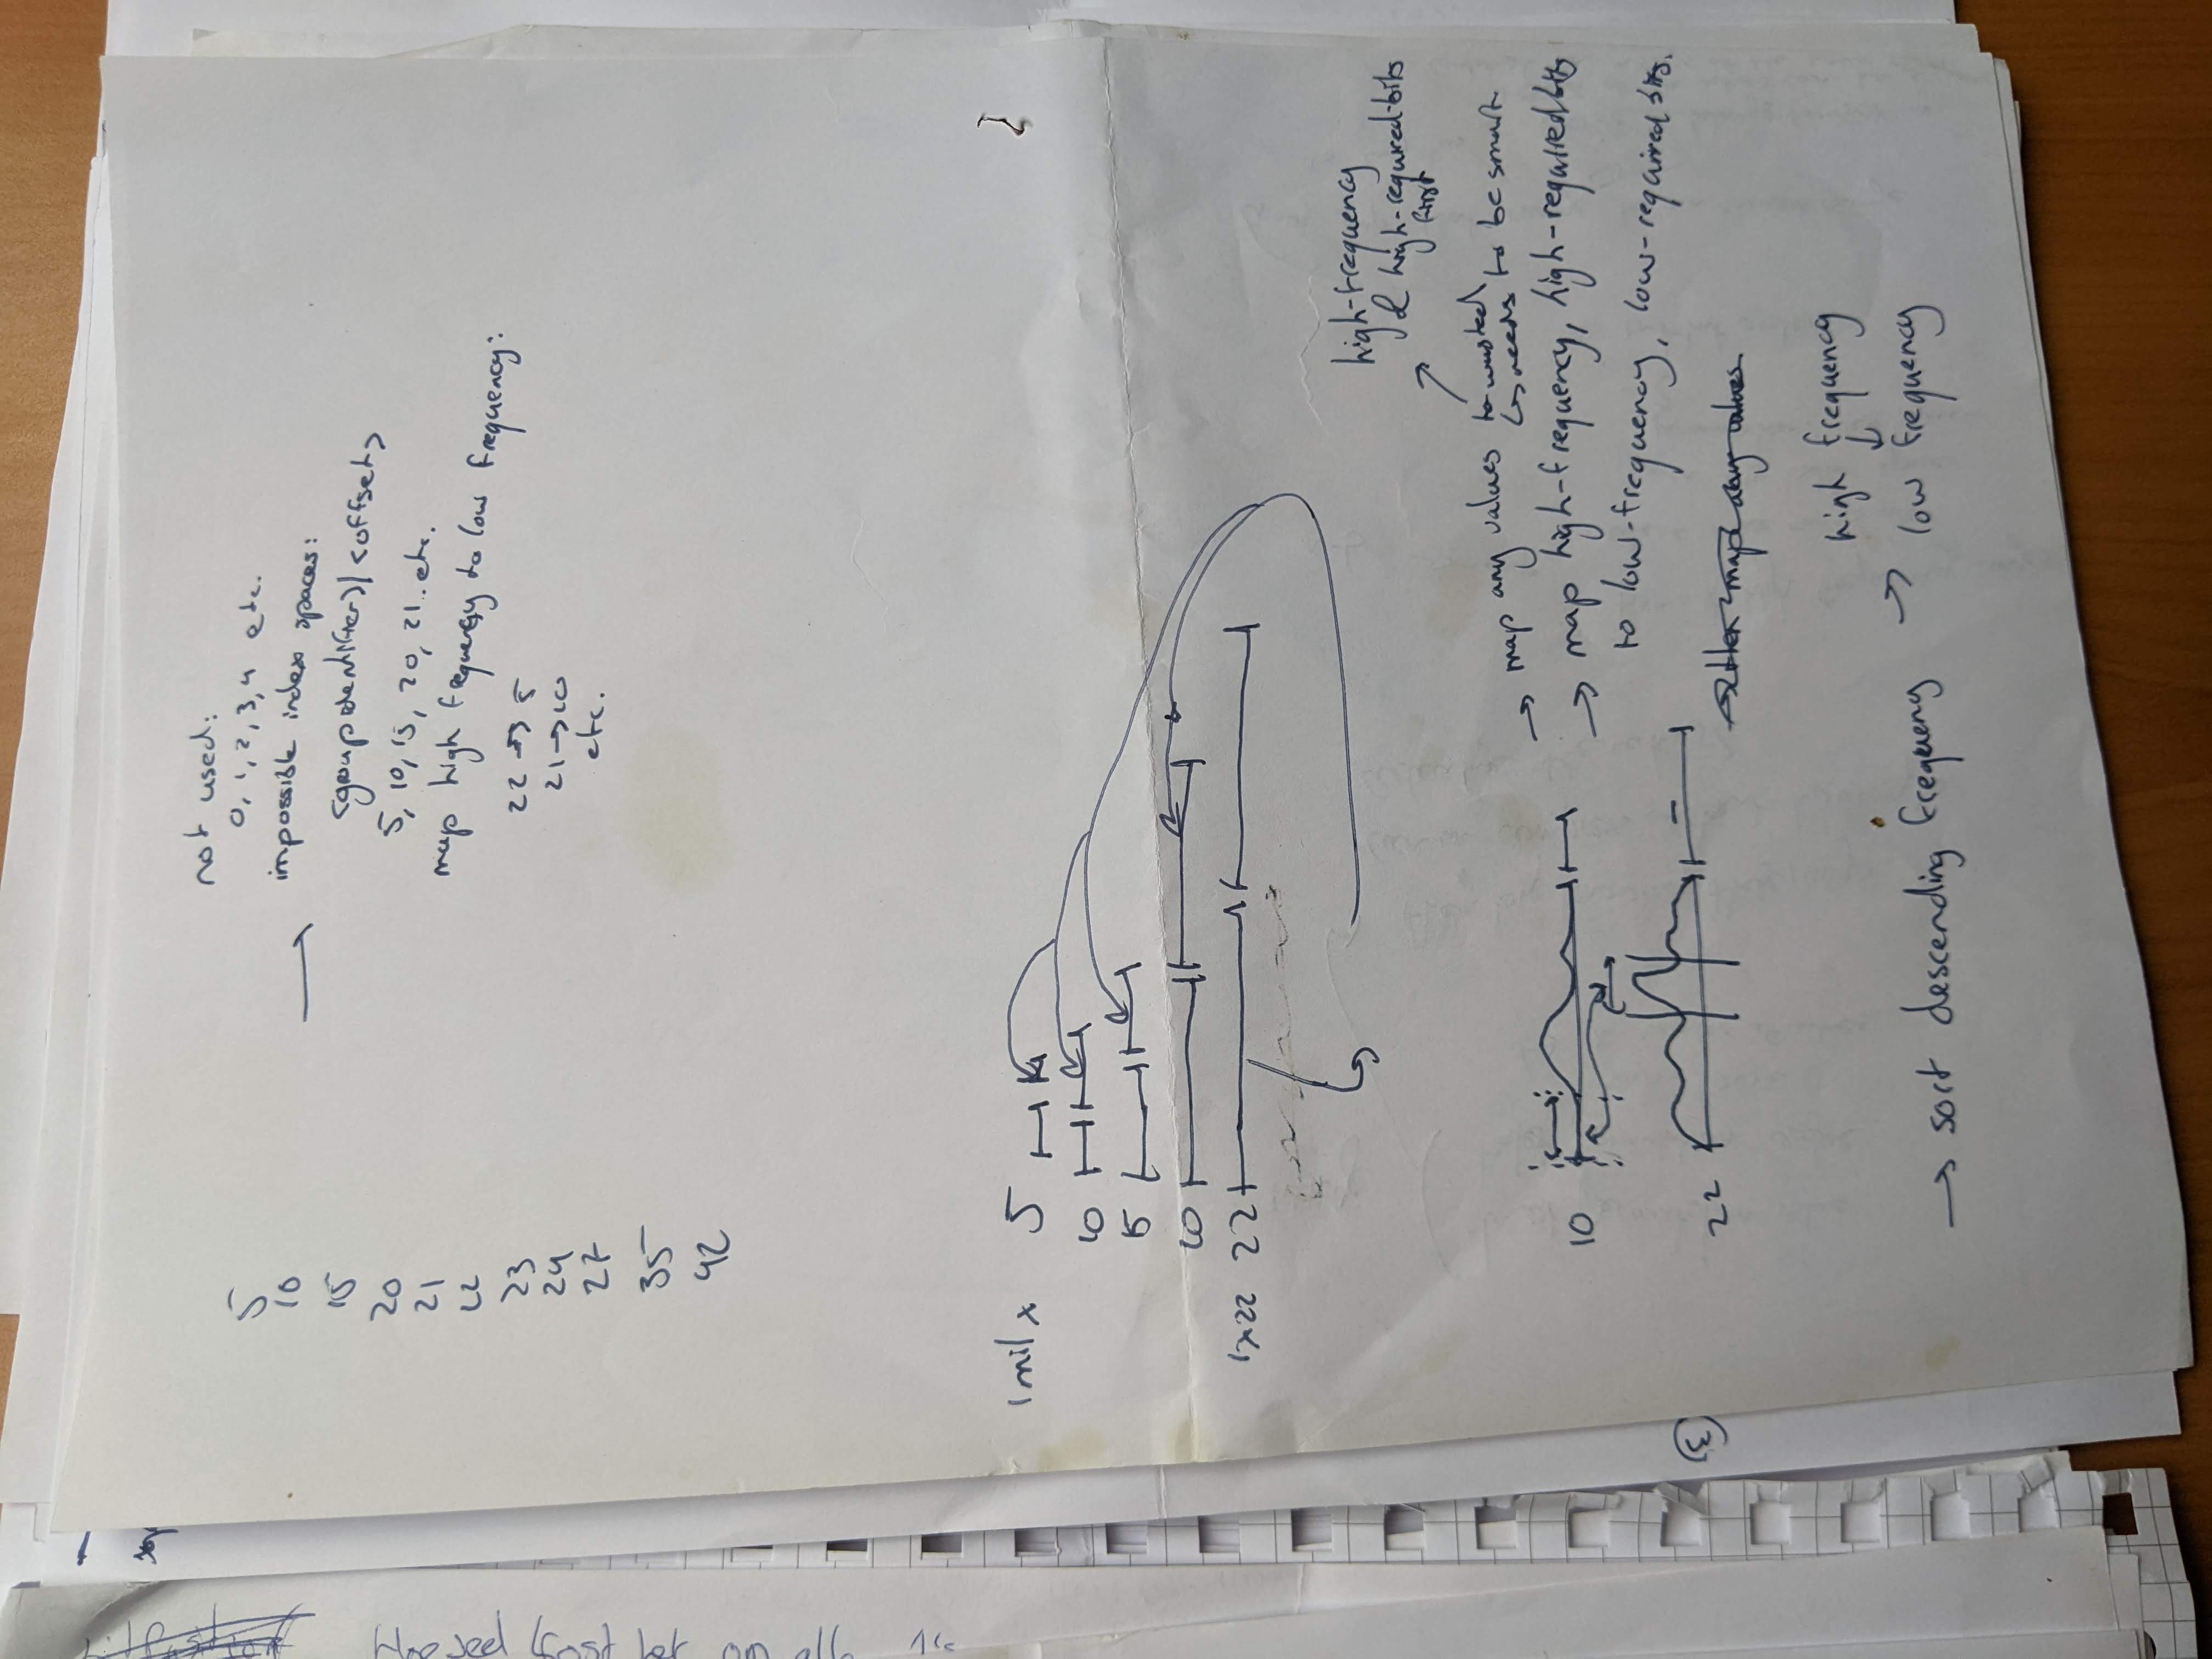 5
10
15
20
21
22
23
24
27
35
42
not used:
0, 1, 2, 3, 4 etc.
impossible index spaces:
<group identifier>|<offset>
5, 10, 15, 20, 21.. etc.
map high frequency to low frequency:
22 → 5
21 → 10
etc.
1 mil x 5
10
15
20
1x22 22
high-frequency
& high-required-bits
first
→ map any values to unused
↳ needs to be smart
→ map high-frequency, high-required bits
to low-frequency, low-required bits.
10
22
→ sort descending frequency → high frequency
↓
low frequency
3
op alle